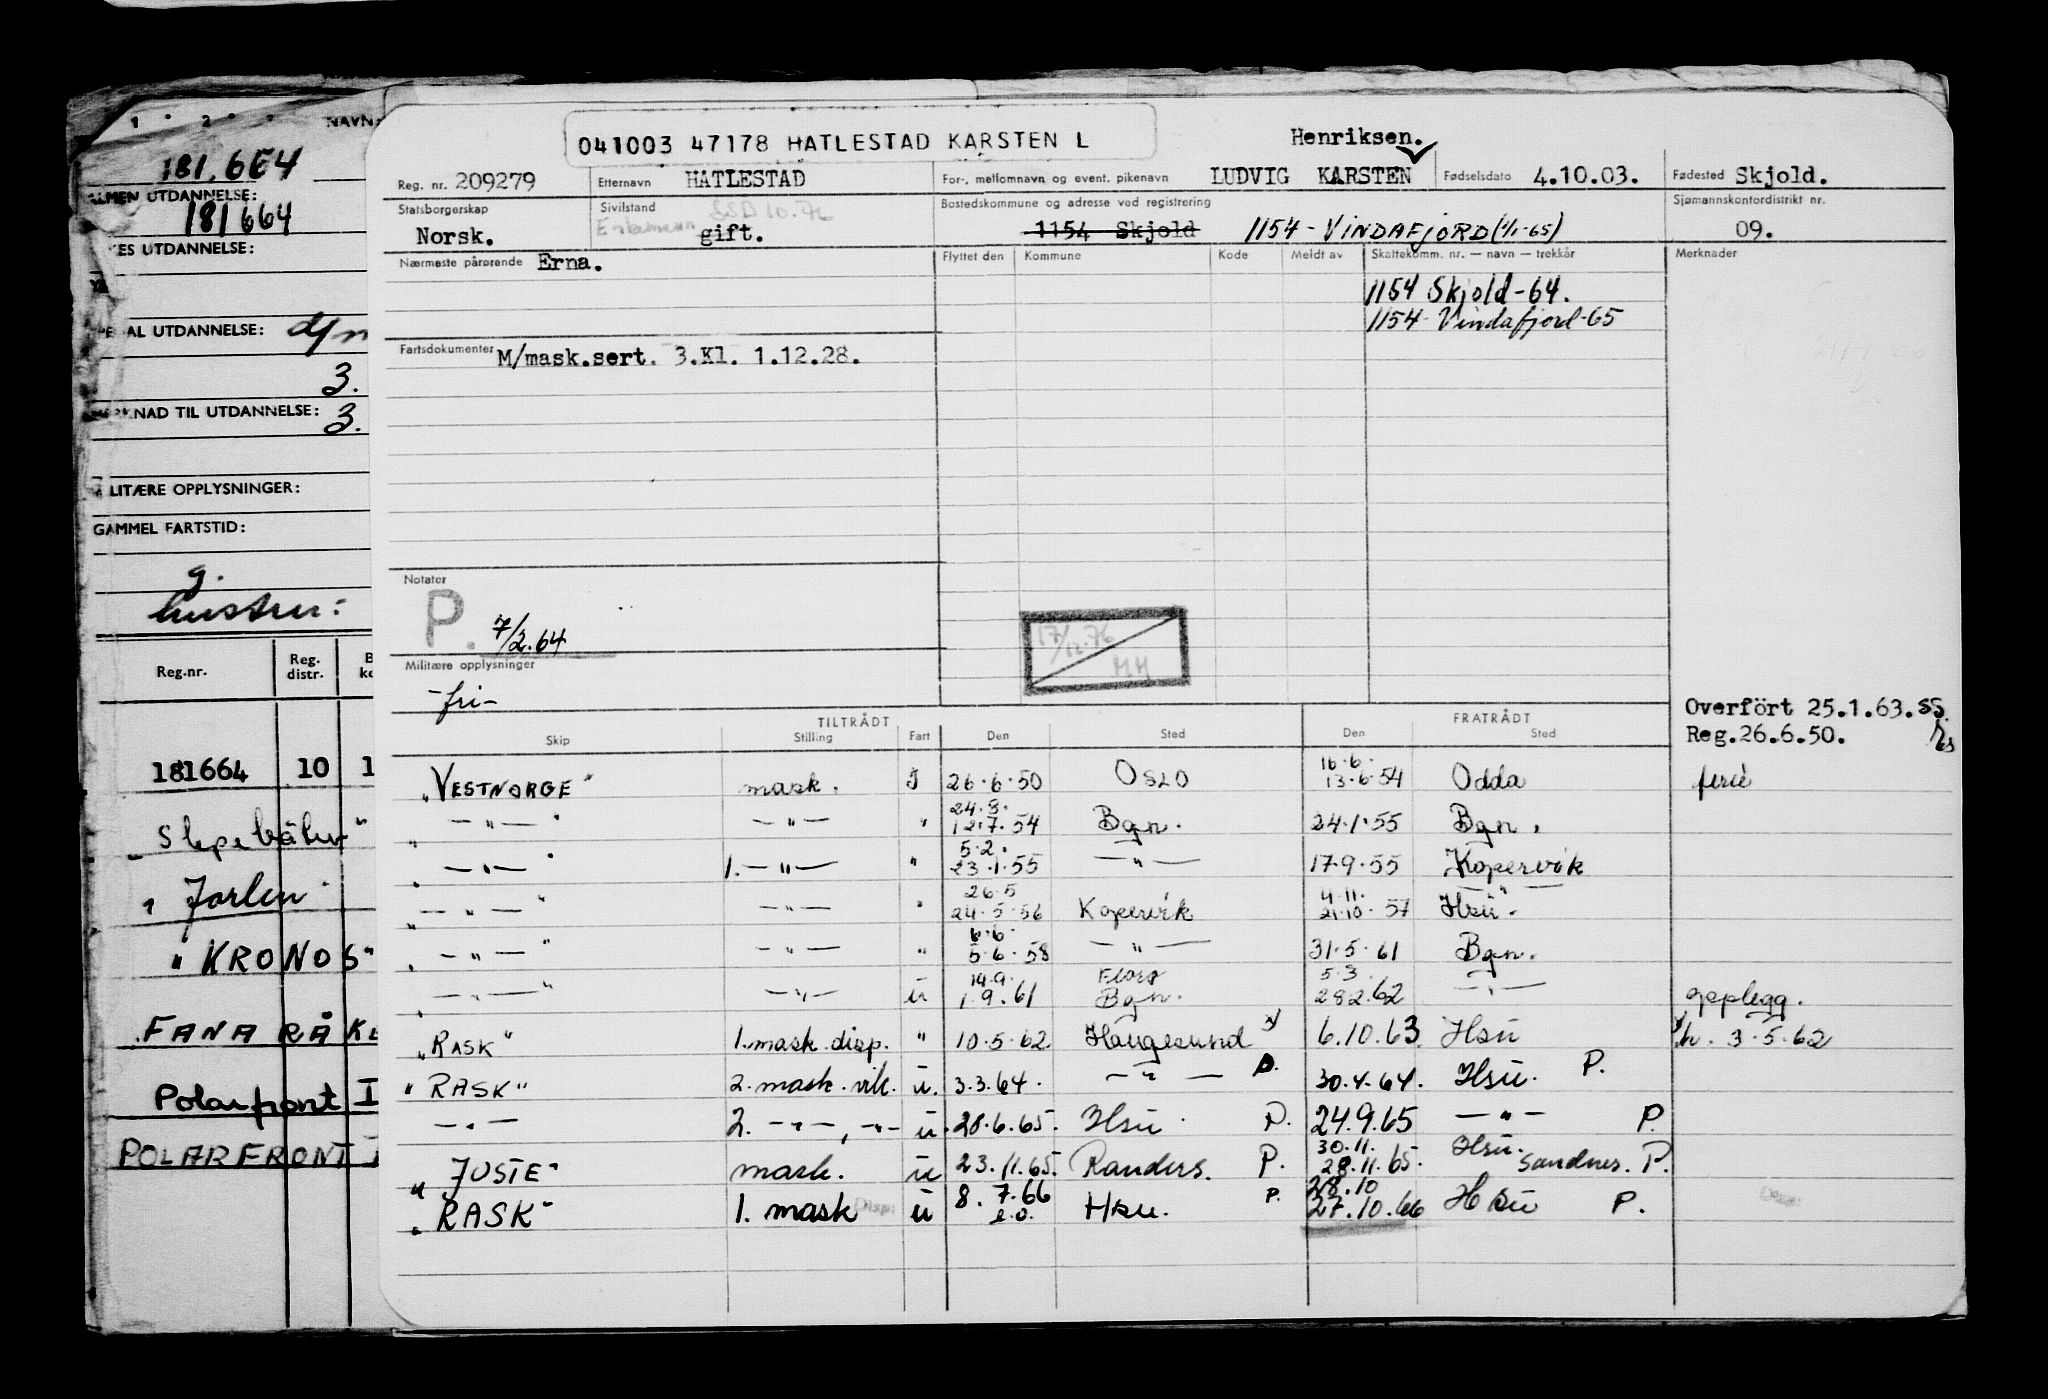 1 2 NAVN:
181.664
ALMEN UTDANNELSE:
181664
KES UTDANNELSE:
AL UTDANNELSE:
3.
MERKNAD TIL UTDANNELSE: 3.
MILITÆRE OPPLYSNINGER:
GAMMEL FARTSTID:
g.
hustru:
Reg.nr. Reg. distr.
181664 10 1
"Jarlen"
"KRONOS"
FANARÅK
Polarfront I
POLARFRONT I
041003 47178 HATLESTAD KARSTEN L
Henriksen.
Reg. nr. 209279 Etternavn HATLESTAD For-, mellomnavn og event. pikenavn LUDVIG KARSTEN Fødselsdato 4.10.03. Fødested Skjold.
Statsborgerskap Norsk. Sivilstand Enkemann gift. SSB 10.76 Bostedskommune og adresse ved registrering 1154 Skjold 1154 - VINDAFJORD (1/1-65) Sjømannskontordistrikt nr. 09.
Nærmeste pårørende Erna. Flyttet den Kommune Kode Meldt av Skattekomm. nr. — navn — trekkår Merknader
1154 Skjold-64.
1154 Vindafjord-65
Fartsdokumenter M/mask.sert. 3.Kl. 1.12.28.
Notater
P. 7/2.64
17/12.76
HH
Militære opplysninger
-fri-
Overfört 25.1.63. SS.
Reg.26.6.50.
TILTRÅDT FRATRÅDT
Skip Stilling Fart Den Sted Den Sted
"VESTNORGE" mask. I 26.6.50 OSLO 16.6. 13.6.54 Odda ferie
" — " — " — " — " 24.8. 12.7.54 Bgn. 24.1.55 Bgn.
" — " — " 1. — " — " 5.2. 23.1.55 — " — 17.9.55 Kopervik
" — " — " — " — " 26.5 24.5.56 Kopervik 4.11. 21.10.57 Hsu.
" — " — " — " — " 6.6. 5.6.58 — " — 31.5.61 Bgn.
" — " — " — " — u 14.9. 1.9.61 Florø Bgn. 5.3. 28.2.62 — " — opplegg.
"RASK" 1. mask. disp. " 10.5.62 Haugesund x) 6.10.63 Hsu 3.5.62
"RASK" 2. mask. vik. u. 3.3.64. — " — P. 30.4.64. Hsu. P.
— " — 2. — " —, — " — u. 28.6.65. Hsu. P. 24.9.65 — " — P.
"JUSTE" mask. u 23.11.65. Randers. P. 30.11. 28.11.65. Hsu. Sandnes. P.
"RASK" 1. mask Disp. u 8.7.66 e.o. Hsu. P. 28.10 27.10.66 Hsu P. Disp.